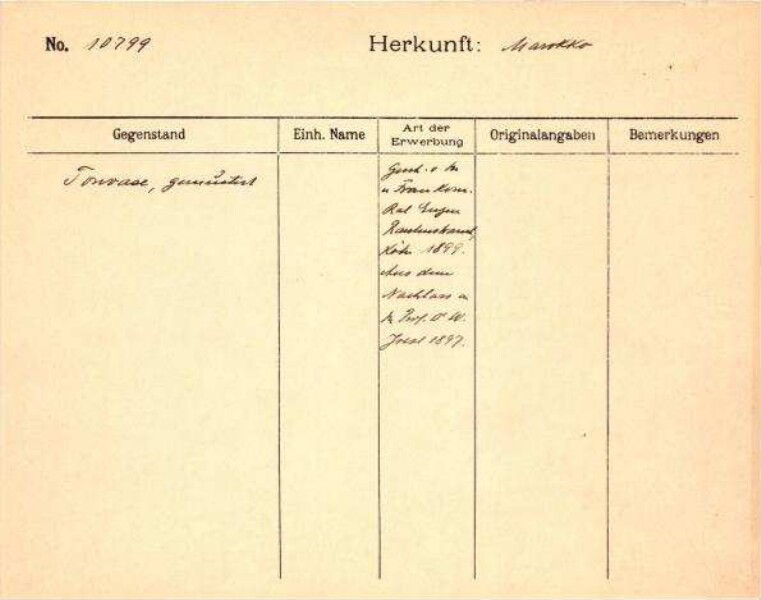 No. 10799 Herkunft: Marokko
Gegenstand Einh. Name Art der Erwerbung Originalangaben Bemerkungen
Tonvase, gemustert
Gesch. v. H.
u Frau Kom.
Rat Eugen
Rautenstrauch,
Köln 1899.
Aus dem
Nachlass v.
H. Prof. Dr W.
Joest 1897.